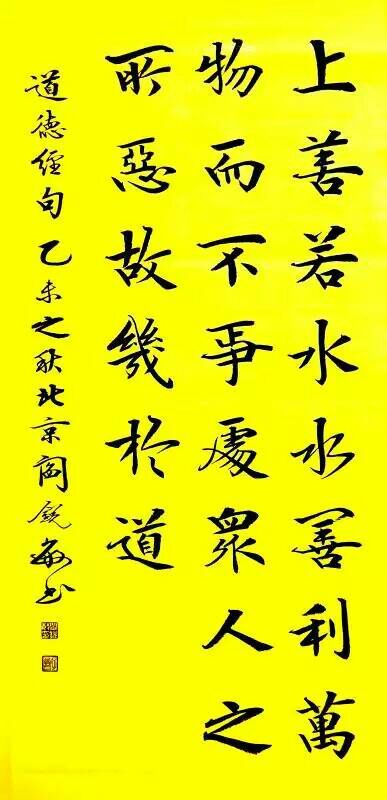 上善若水水善利萬
物而不爭處眾人之
所惡故幾於道
道德經句乙未之秋北京閻銳敏書